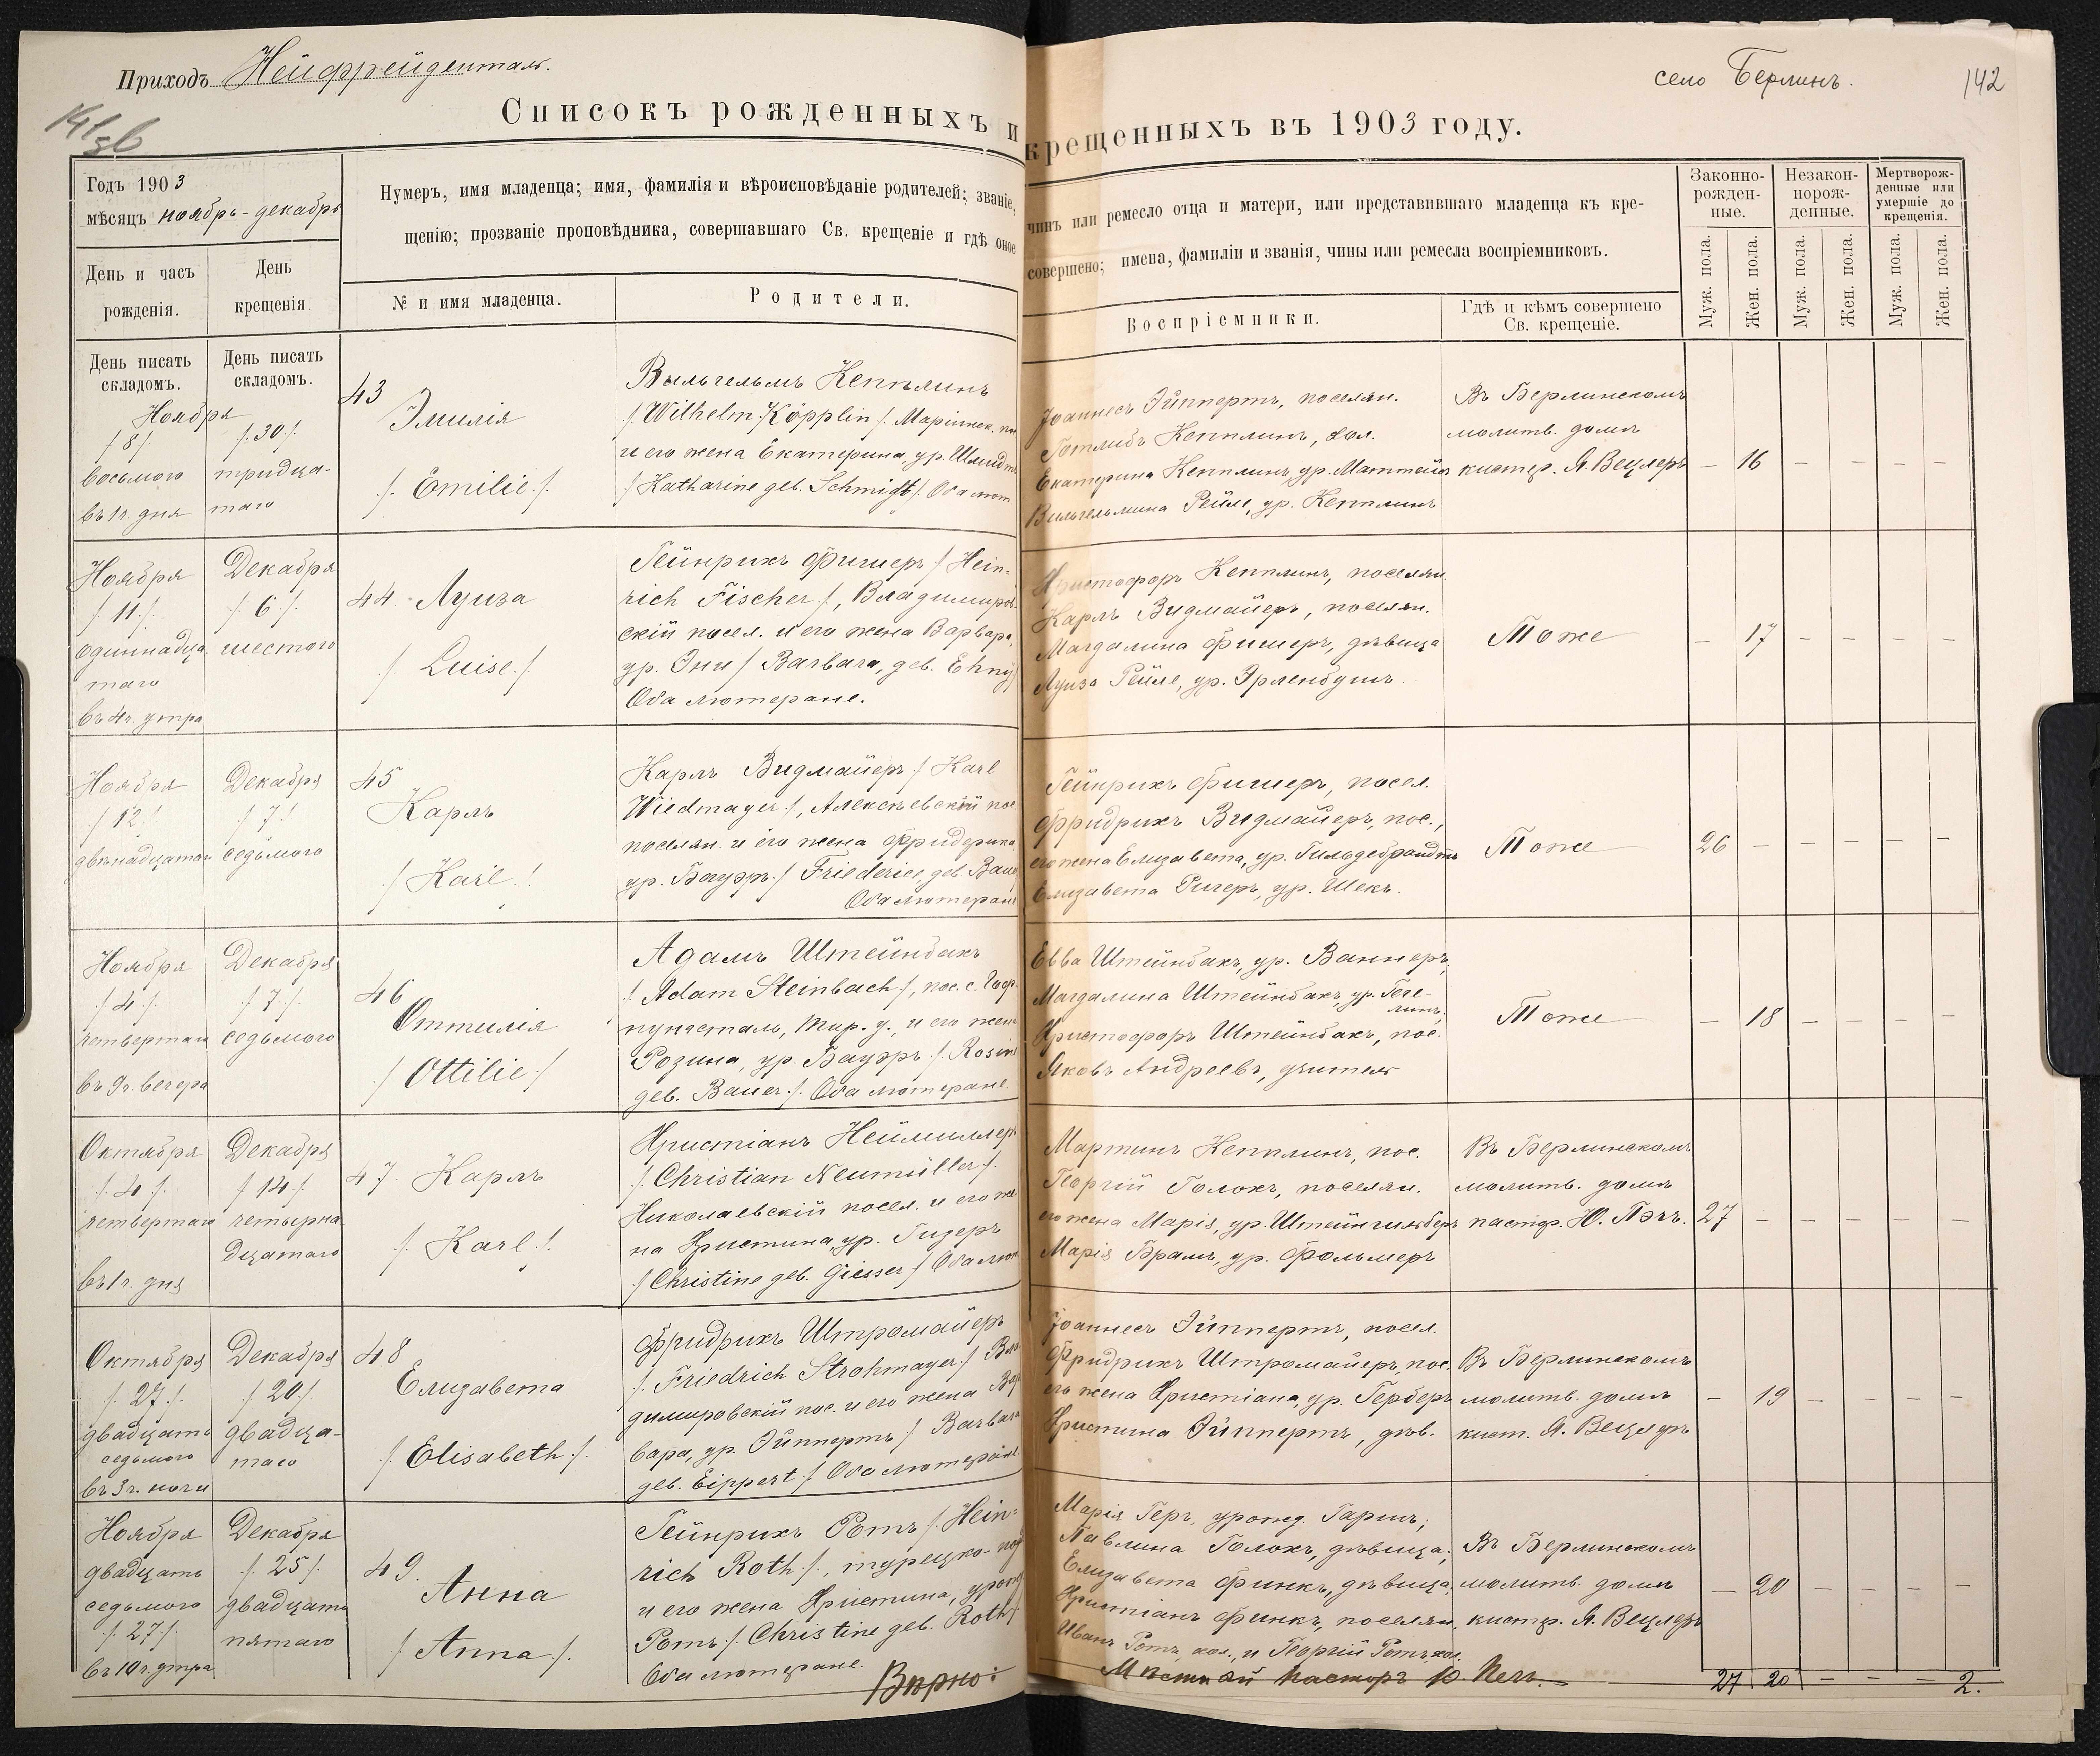 Приходъ Нейфрейденталь.
село Берлинъ.
142
Списокъ рожденныхъ и крещенныхъ въ 1903 году.
Годъ 1903
мѣсяцъ ноябрь-декабрь
Нумеръ, имя младенца; имя, фамилія и вѣроисповѣданіе родителей; званіе, чинъ или ремесло отца и матери, или представившаго младенца къ кре-
щенію; прозваніе проповѣдника, совершавшаго Св. крещеніе и гдѣ оное совершено; имена, фамиліи и званія, чины или ремесла воспріемниковъ.
Законно-
рожден-
ные.
Незакон-
норож-
денные.
Мертворож-
денные или
умершіе до
крещенія.
День и часъ
рожденія.
День
крещенія.
№ и имя младенца.
Родители.
Воспріемники.
Гдѣ и кѣмъ совершено
Св. крещеніе.
Муж. пола.
Жен. пола.
Муж. пола.
Жен. пола.
Муж. пола.
Жен. пола.
День писать
складомъ.
День писать
складомъ.
Ноября
/8/.
восьмого
въ 1 ч. дня
/.30./.
тридца-
таго
43
Эмилія
/. Emilie./.
Вильгельмъ Кепплинъ
/. Wilhelm Köpplin /. Маріинск. по
и его жена Екатерина ур. Шмидтъ
/ Katharine geb. Schmidt /. Оба лют
Іоаннесъ Эйппертъ, поселян.
Готлибъ Кепплинъ, кол.
Екатерина Кепплинъ, ур. Маттейсъ
Вильгельмина Рейле, ур. Кепплинъ
Въ Берлинскомъ
молитв. домѣ
кистер. Я. Вецлеръ
— 16 — — — —
Ноября
/. 11 /.
одиннадца
таго
въ 4 ч. утра
Декабря
/. 6 /.
шестого
44. Луиза
/. Luise./.
Гейнрихъ Фишеръ /. Hein-
rich Fischer /., Владимиров-
скій посел. и его жена Варвара,
ур. Эни / Barbara, geb. Ehny/
Оба лютеране.
Христофоръ Кепплинъ, поселян.
Карлъ Видмайеръ, поселян.
Магдалина Фишеръ, дѣвица
Луиза Рейле, ур. Эрленбушъ.
Тоже
— 17 — — — —
Ноября
/ 12 /
двѣнадцатаго
Декабря
/. 7./
седьмого
45
Карлъ
/. Karl./.
Карлъ Видмайеръ /. Karl
Wiedmayer /., Алексѣевскій пос.
поселян. и его жена Фридерика,
ур. Бауэръ /. Friederice, geb. Baue
Оба лютеране
Гейнрихъ Фишеръ, посел.
Фридрихъ Видмайеръ, пос.,
его жена Елизавета, ур. Гильдебрандтъ
Елизавета Ригеръ, ур. Шекъ.
Тоже
26 — — — — —
Ноября
/. 4 /.
четвертаго
въ 9 ч. вечера
Декабря
/ 7./.
седьмого
46
Оттилія
/ Ottilie /
Адамъ Штейнбахъ
/. Adam Steinbach /, пос. с. Гоф-
нунгсталь, Тир. у., и его жена
Розина, ур. Бауэръ /. Rosine
geb. Bauer./. Оба лютеране.
Евва Штейнбахъ, ур. Ваннеръ,
Магдалина Штейнбахъ, ур. Геге-
линъ;
Христофоръ Штейнбахъ, пос.
Яковъ Андреевъ, учитель
Тоже
— 18 — — — —
Октября
/. 4 /.
четвертаго
въ 1 ч. дня
Декабря
/ 14 /
четырна
дцатаго
47. Карлъ
/. Karl./.
Христіанъ Неймиллеръ
/. Christian Neumüller/.
Николаевскій посел. и его же-
на Христина, ур. Гизеръ
/ Christine geb. Giesser / Оба лют
Мартинъ Кепплинъ, пос.
Георгій Голокъ, поселян.
его жена Марія, ур. Штейнгильберъ
Марія Брамъ, ур. Фольмеръ
Въ Берлинскомъ
молитв. домѣ
пастор. Ю. Пэчъ.
27 — — — — —
Октября
/. 27./.
двадцать
седьмого
въ 3 ч. ночи
Декабря
/ 20/.
двадца-
таго
48
Елизавета
/. Elisabeth /.
Фридрихъ Штромайеръ
/. Friedrich Strohmayer / Вла-
димировскій пос. и его жена Вар
вара, ур. Эйппертъ / Barbara
geb. Eippert /. Оба лютеране
Іоаннесъ Эйппертъ, посел.
Фридрихъ Штромайеръ, пос.
его жена Христіана, ур. Герберъ
Христина Эйппертъ, дѣв.
Въ Берлинскомъ
молитв. домѣ
кист. Я. Вецлеръ
— 19 — — — —
Ноября
двадцать
седьмого
/. 27 /.
въ 10 ч. утра
Декабря
/. 25 /.
двадцать
пятаго
49.
Анна
/ Anna /.
Гейнрихъ Ротъ /. Hein-
rich Roth /., турецко-под
и его жена Христина, урожд
Ротъ /. Christine geb. Roth/
Оба лютеране.
Марія Геръ, урожд. Гаришъ;
Павлина Голокъ, дѣвица;
Елизавета Финкъ, дѣвица;
Христіанъ Финкъ, поселян.
Иванъ Ротъ, кол., и Георгій Ротъ, кол.
Въ Берлинскомъ
молитв. домѣ
кистер. Я. Вецлеръ
— 20 — — — —
Вѣрно:
Мѣстный Пасторъ Ю. Печъ.
27 20 — — — 2.